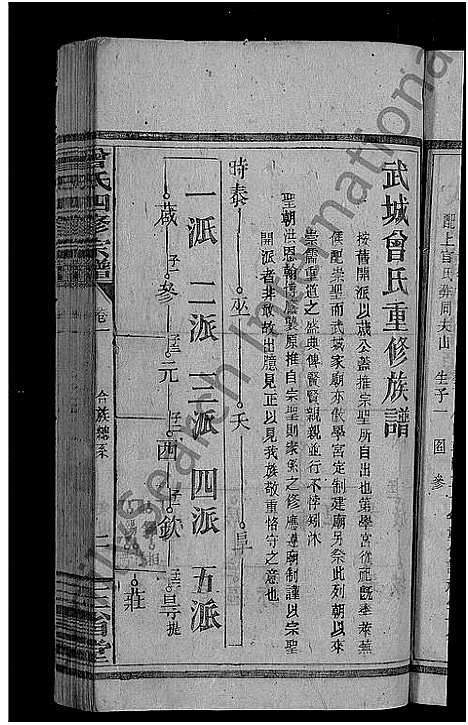 配上官氏葬周夫山 生子一
圖參
武城曾氏重修族譜
按舊開派以蒇公蓋推宗聖所自出也第學宮從祀既奉萊蕪
侯配崇聖而武城家廟亦倣學宮定制建廟另祭此列朝以來
崇儒重道之盛典俾賢賢親親並行不悖矧沐
聖朝洪恩翰博原推自宗聖則家乘之修應尊廟制謹以宗聖
開派者非敢故出臆見正以見我族敬重恪守之意也
時泰 巫 夭 阜
一派 二派 三派 四派 五派
蒇 子 參 元 子 西 子 欽 㝷
莊
曾氏四修宗譜 卷一 合族總系
三省堂